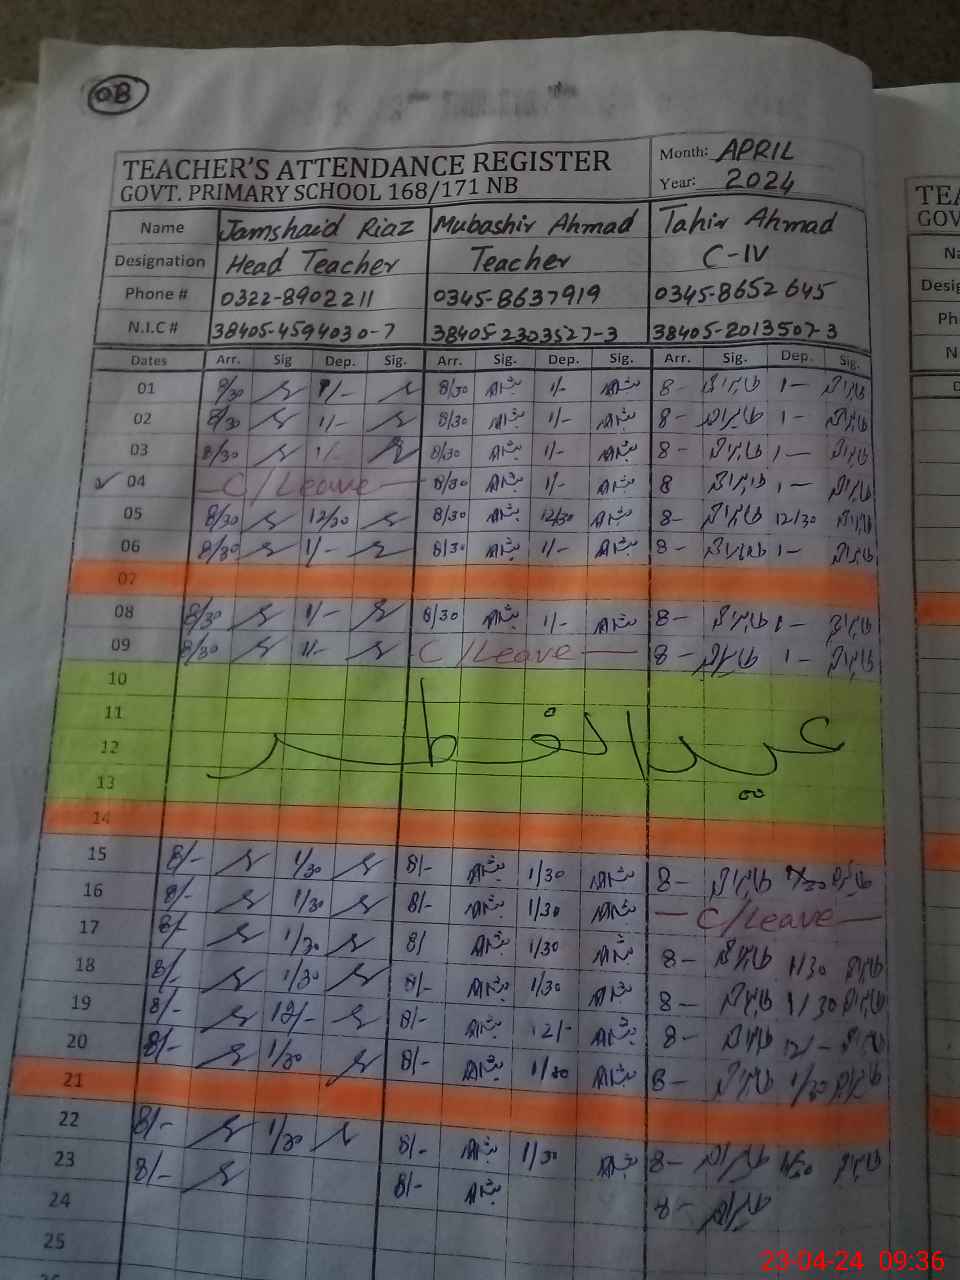 OB
TEACHER'S ATTENDANCE REGISTER
GOVT. PRIMARY SCHOOL 168/171 NB
Month: APRIL
Year: 2024
Name Jamshaid Riaz Mubashir Ahmad Tahir Ahmad
Designation Head Teacher Teacher C-IV
Phone # 0322-8902211 0345-8637919 0345-8652645
N.I.C # 38405-4594030-7 38405-2303527-3 38405-2013507-3
Dates Arr. Sig Dep. Sig. Arr. Sig. Dep. Sig. Arr. Sig. Dep. Sig.
01 8/30 1/- 8/30 1/- 8- 1-
02 8/30 1/- 8/30 1/- 8- 1-
03 8/30 1/- 8/30 1/- 8- 1-
04 C/Leave 8/30 1/- 8 1-
05 8/30 12/30 8/30 12/30 8- 12/30
06 8/30 1/- 8/30 1/- 8- 1-
07
08 8/30 1/- 8/30 1/- 8- 1-
09 8/30 1/- C/Leave 8- 1-
10
11
عیدالفطر
12
13
14
15 8/- 1/30 8/- 1/30 8-
16 8/- 1/30 8/- 1/30 C/Leave
17 8/- 1/30 8/ 1/30 8- 1/30
18 8/- 1/30 8/- 1/30 8- 1/30
19 8/- 12/- 8/- 12/- 8- 12/-
20 8/- 1/30 8/- 1/30 8- 1/30
21
22 8/- 1/30 8/- 1/30 8- 1/30
23 8/- 8/- 8-
24
25
TEA
GOV
Na
Desig
Ph
N
D
23-04-24 09:36